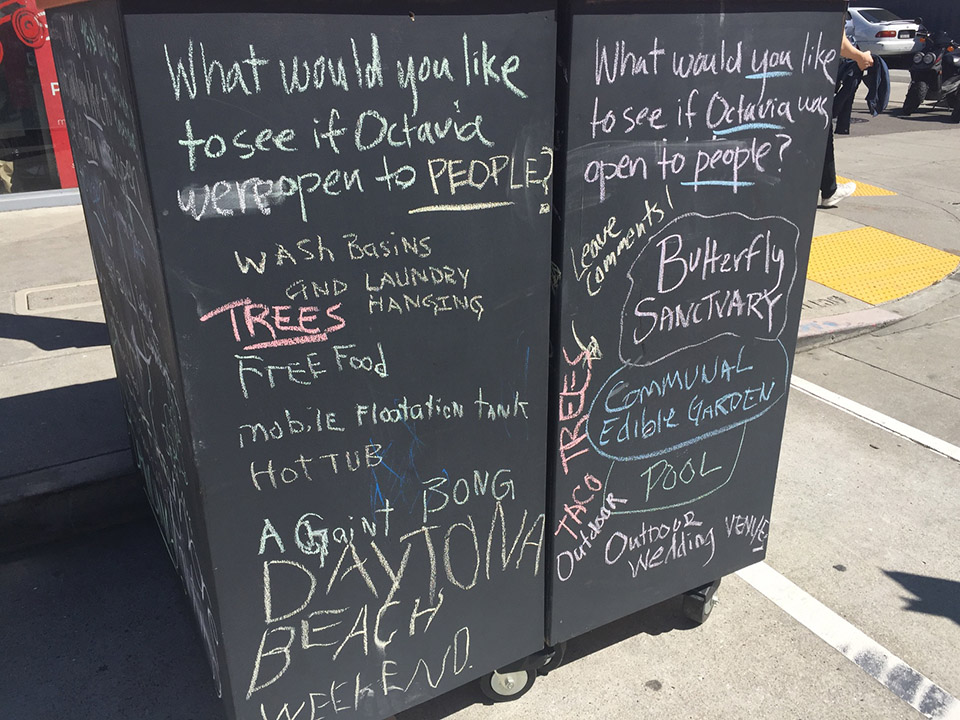 What would you like
to see if Octavia
were open to PEOPLE?
WASH BASINS
AND LAUNDRY
HANGING
TREES
FREE FOOD
mobile Floatation TANK
HOT TUB
A Gaint BONG
DAYTONA
BEACH
WEEKEND.
What would you like
to see if Octavia was
open to people?
Leave
Comments!
Butterfly
SANCTUARY
COMMUNAL
Edible GARDEN
POOL
TACO TREES
Outdoor
OUTDOOR
Wedding VENUE